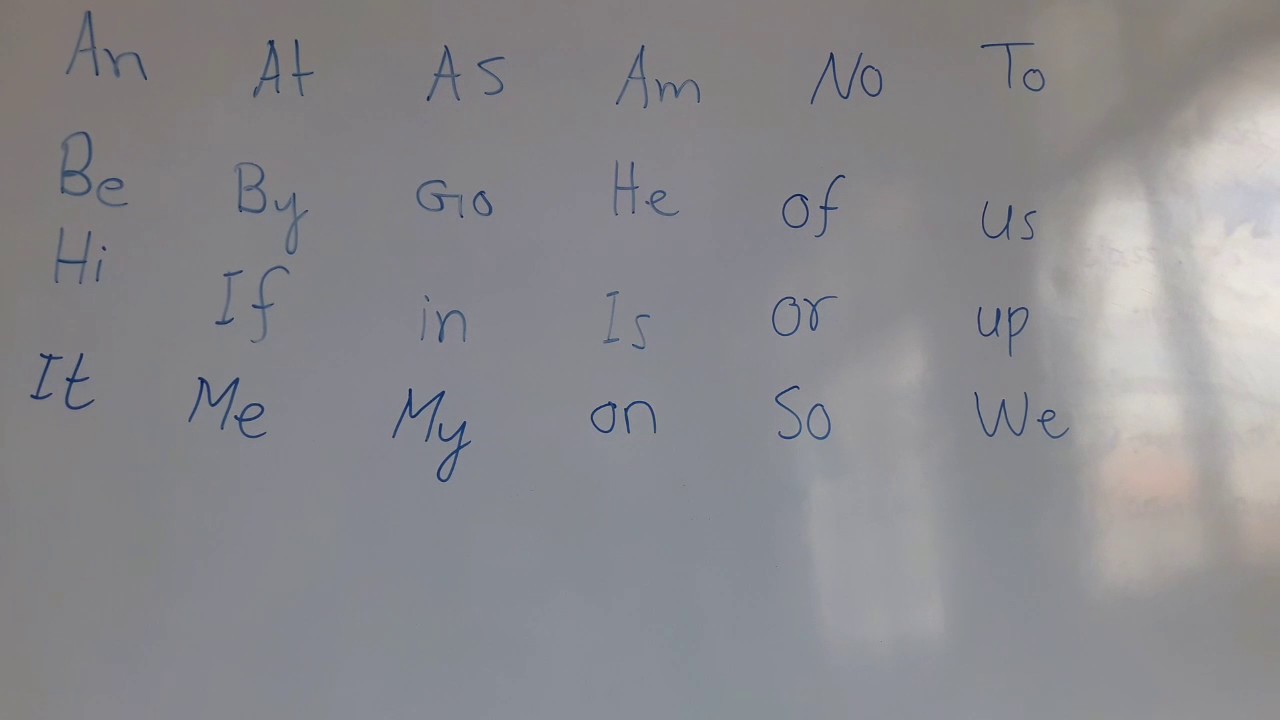 An At As Am No To
Be By Go He of us
Hi If in Is or up
It Me My on So We